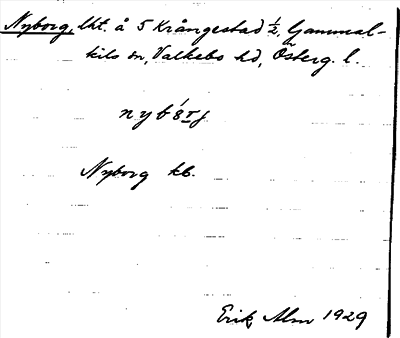 Nyborg, lht. å 5 Krångestad ½, Gammal-
kils sn, Valkebo hd, Österg. l.
Nyborg kb.
Erik Alm 1929